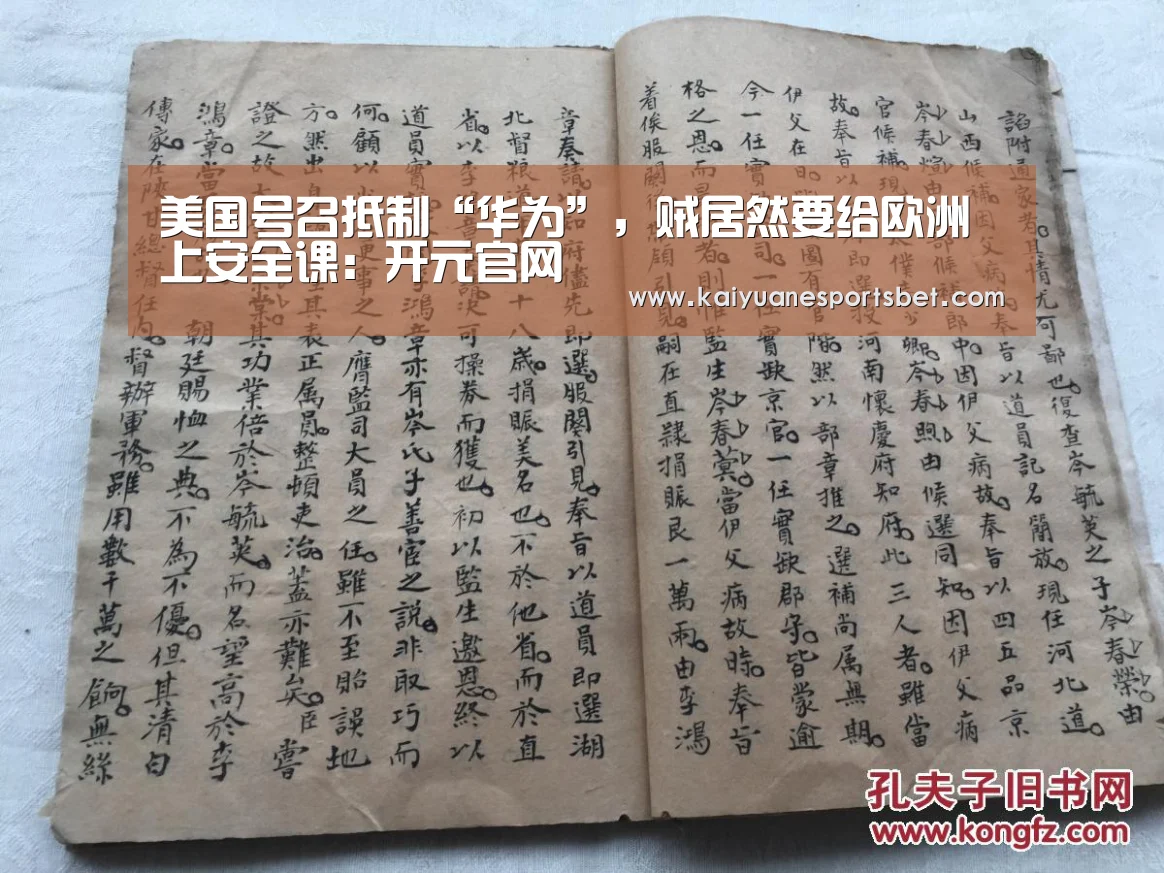 美国号召抵制“华为”，贼居然要给欧洲
上安全课：开元官网
www.kaiyuanesportsbet.com
諂附通家者。其情尤可鄙也。復查岑毓英之子岑春榮。由
山西候補。因父病內奉旨以道員記名簡放。現任河北道。
岑春煊由部候補郎中。因伊父病故。奉旨以四五品京
官候補。現太僕少卿。岑春煦由候選同知。因伊父病
故。奉旨以即選授河南懷慶府知府。此三人者。雖當
伊父在日。圖有官階。然以部章推之。選補尚属無期。
今一任實缺司。一任實缺京官。一任實缺郡守。皆蒙逾
格之恩。而者。則惟監生岑春蓂。當伊父病故時。奉旨
着俟服闋後領引見。嗣在直隷捐賑艮一萬兩。由李鴻
章奏請以知府儘先即選。服闋引見。奉旨以道員即選湖
北督粮道十八歲捐賑美名也。不於他省。而於直
省。以李決可操券而獲也。初以監生邀恩。終以
道員實鴻章亦有岑氏子善宦之說。非取巧而
何。顧以少更事之人。膺監司大員之任。雖不至貽誤地
方。然出身望其表正属員。整頓吏治。蓋亦難矣。臣嘗
證之故棠其功業倍於岑毓英。而名望高於李
鴻章。當朝廷賜恤之典。不為不優。但其清白
傳家。在陝甘總督任內。督辦軍務。雖用數千萬之餉。無絲
孔夫子旧书网
www.kongfz.com